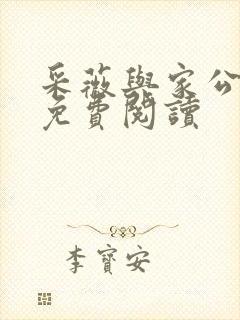 采薇與家公
免費閱讀
李寶安